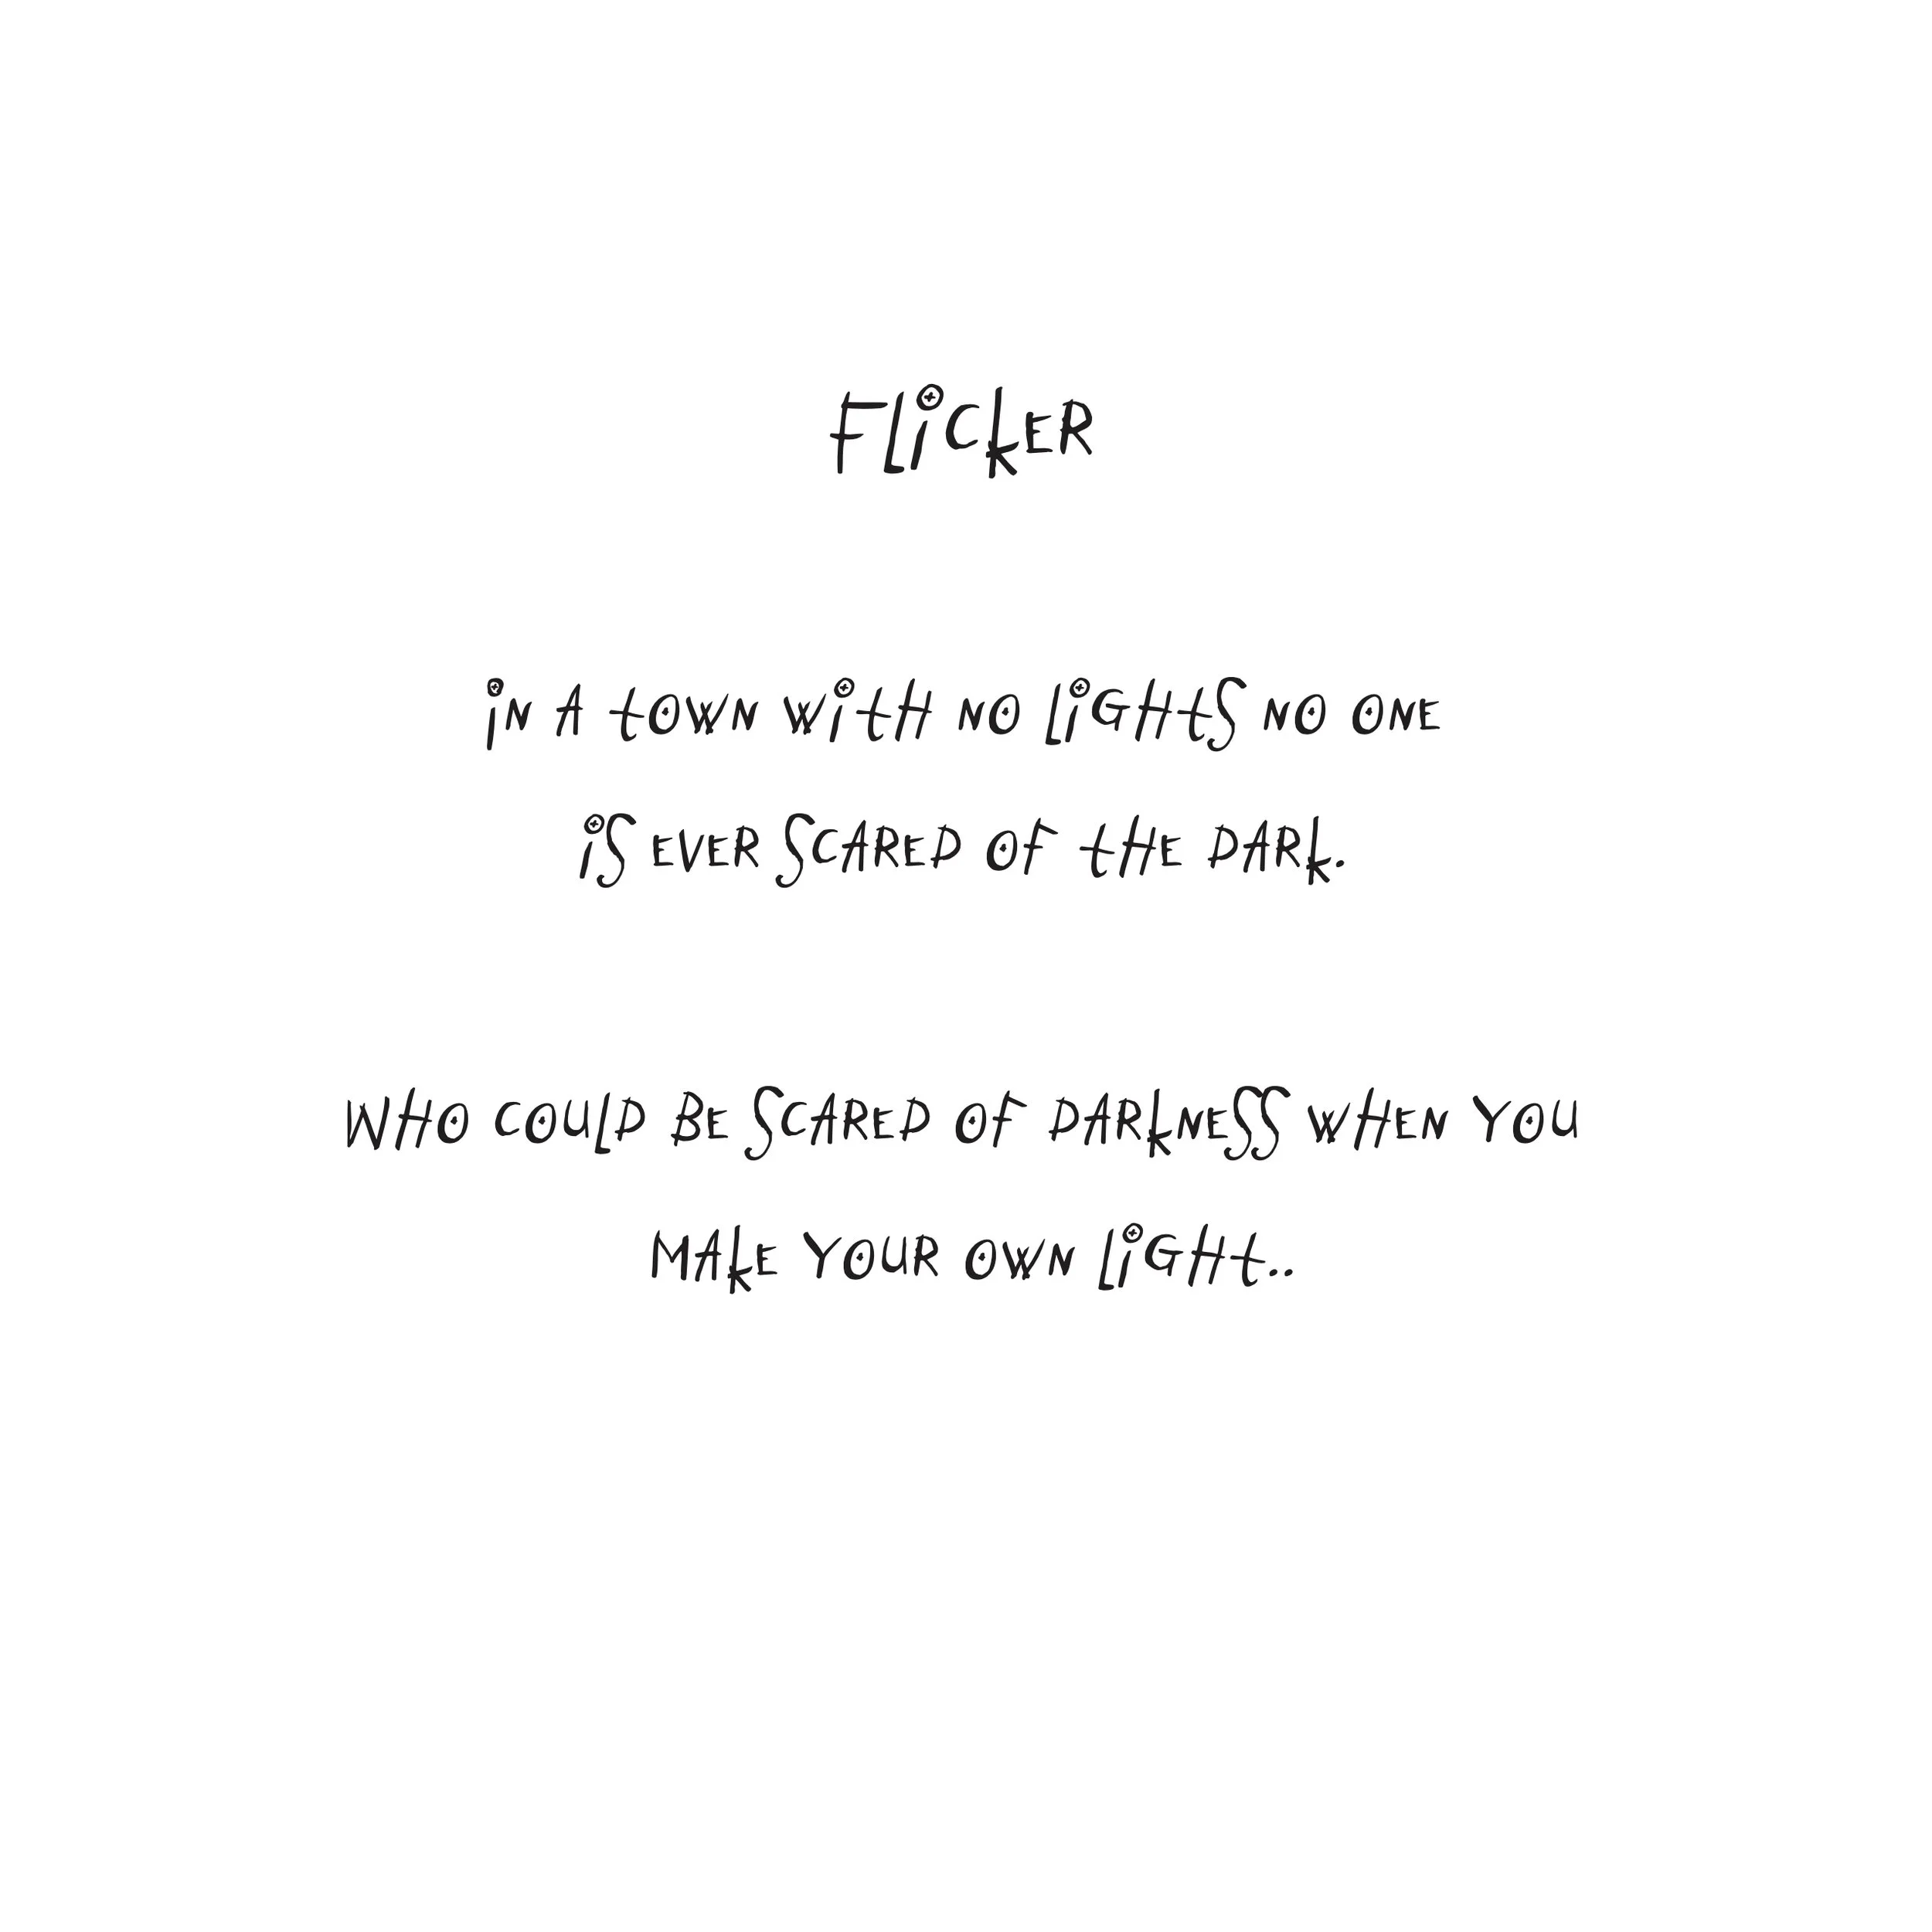 Flicker
In a town with no lights no one
is ever scared of the dark.
Who could be scared of darkness when you
make your own light..